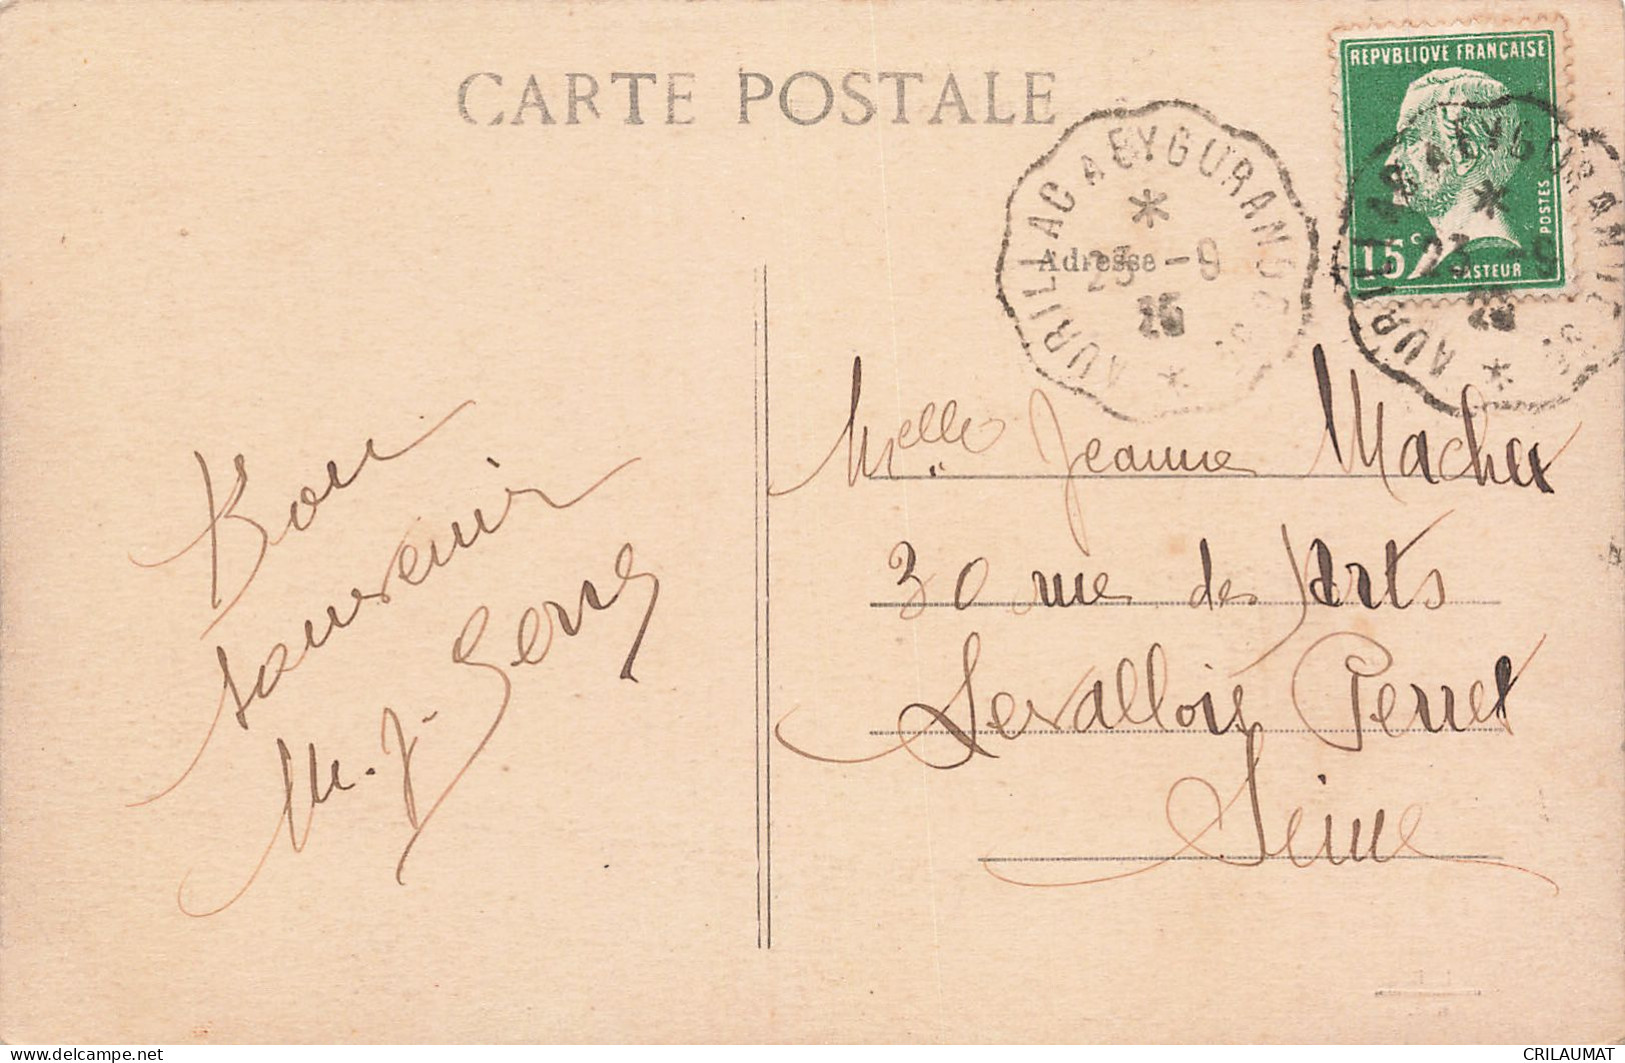 CARTE POSTALE
REPVBLIQVE FRANÇAISE
15c
PASTEUR
POSTES
AURILLAC A EYGURANDE
23 - 9
25
AURILLAC A EYGURANDE
23 - 9
25
Adresse
Bon
souvenir
M. J.
Melle Jeanne
30 rue des Arts
Levallois Perret
Seine
delcampe.net
CRILAUMAT